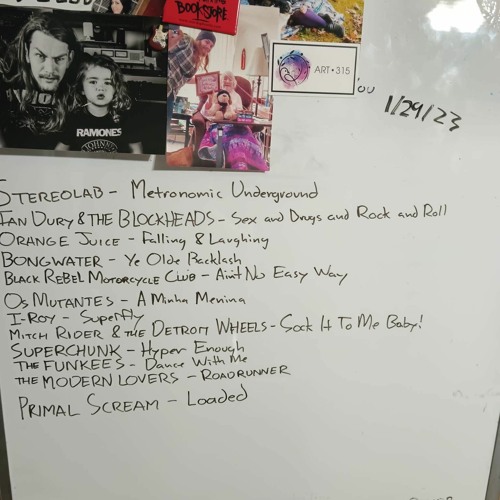 BOOKSTORE
ART•315
RAMONES
JOHNNY
1/29/23
STEREOLAB - Metronomic Underground
IAN DURY & THE BLOCKHEADS - Sex and Drugs and Rock and Roll
ORANGE JUICE - Falling & Laughing
BONGWATER - Ye Olde Backlash
BLACK REBEL MOTORCYCLE CLUB - Ain't No Easy Way
OS MUTANTES - A Minha Menina
I-ROY - Superfly
MITCH RIDER & THE DETROIT WHEELS - Sock It To Me Baby!
SUPERCHUNK - Hyper Enough
THE FUNKEES - Dance With Me
THE MODERN LOVERS - ROADRUNNER
PRIMAL SCREAM - Loaded